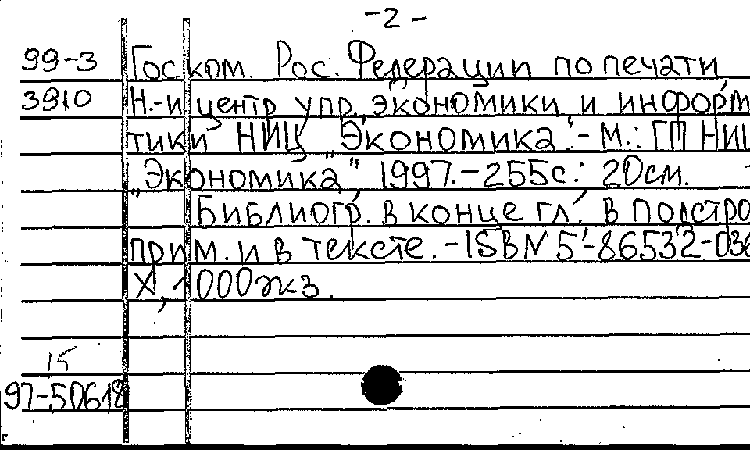 -2-
99-3 Госком. Рос. Федерации по печати,
3910 Н.-и центр упр., экономики и информ
тики НИЦ „Экономика".- М.: ГП НИЦ
„Экономика", 1997.-255с.: 20см.
Библиогр. в конце гл. в подстро
прим. и в тексте.-ISBN 5-86532-036
X, 1000экз.
15
97-50618